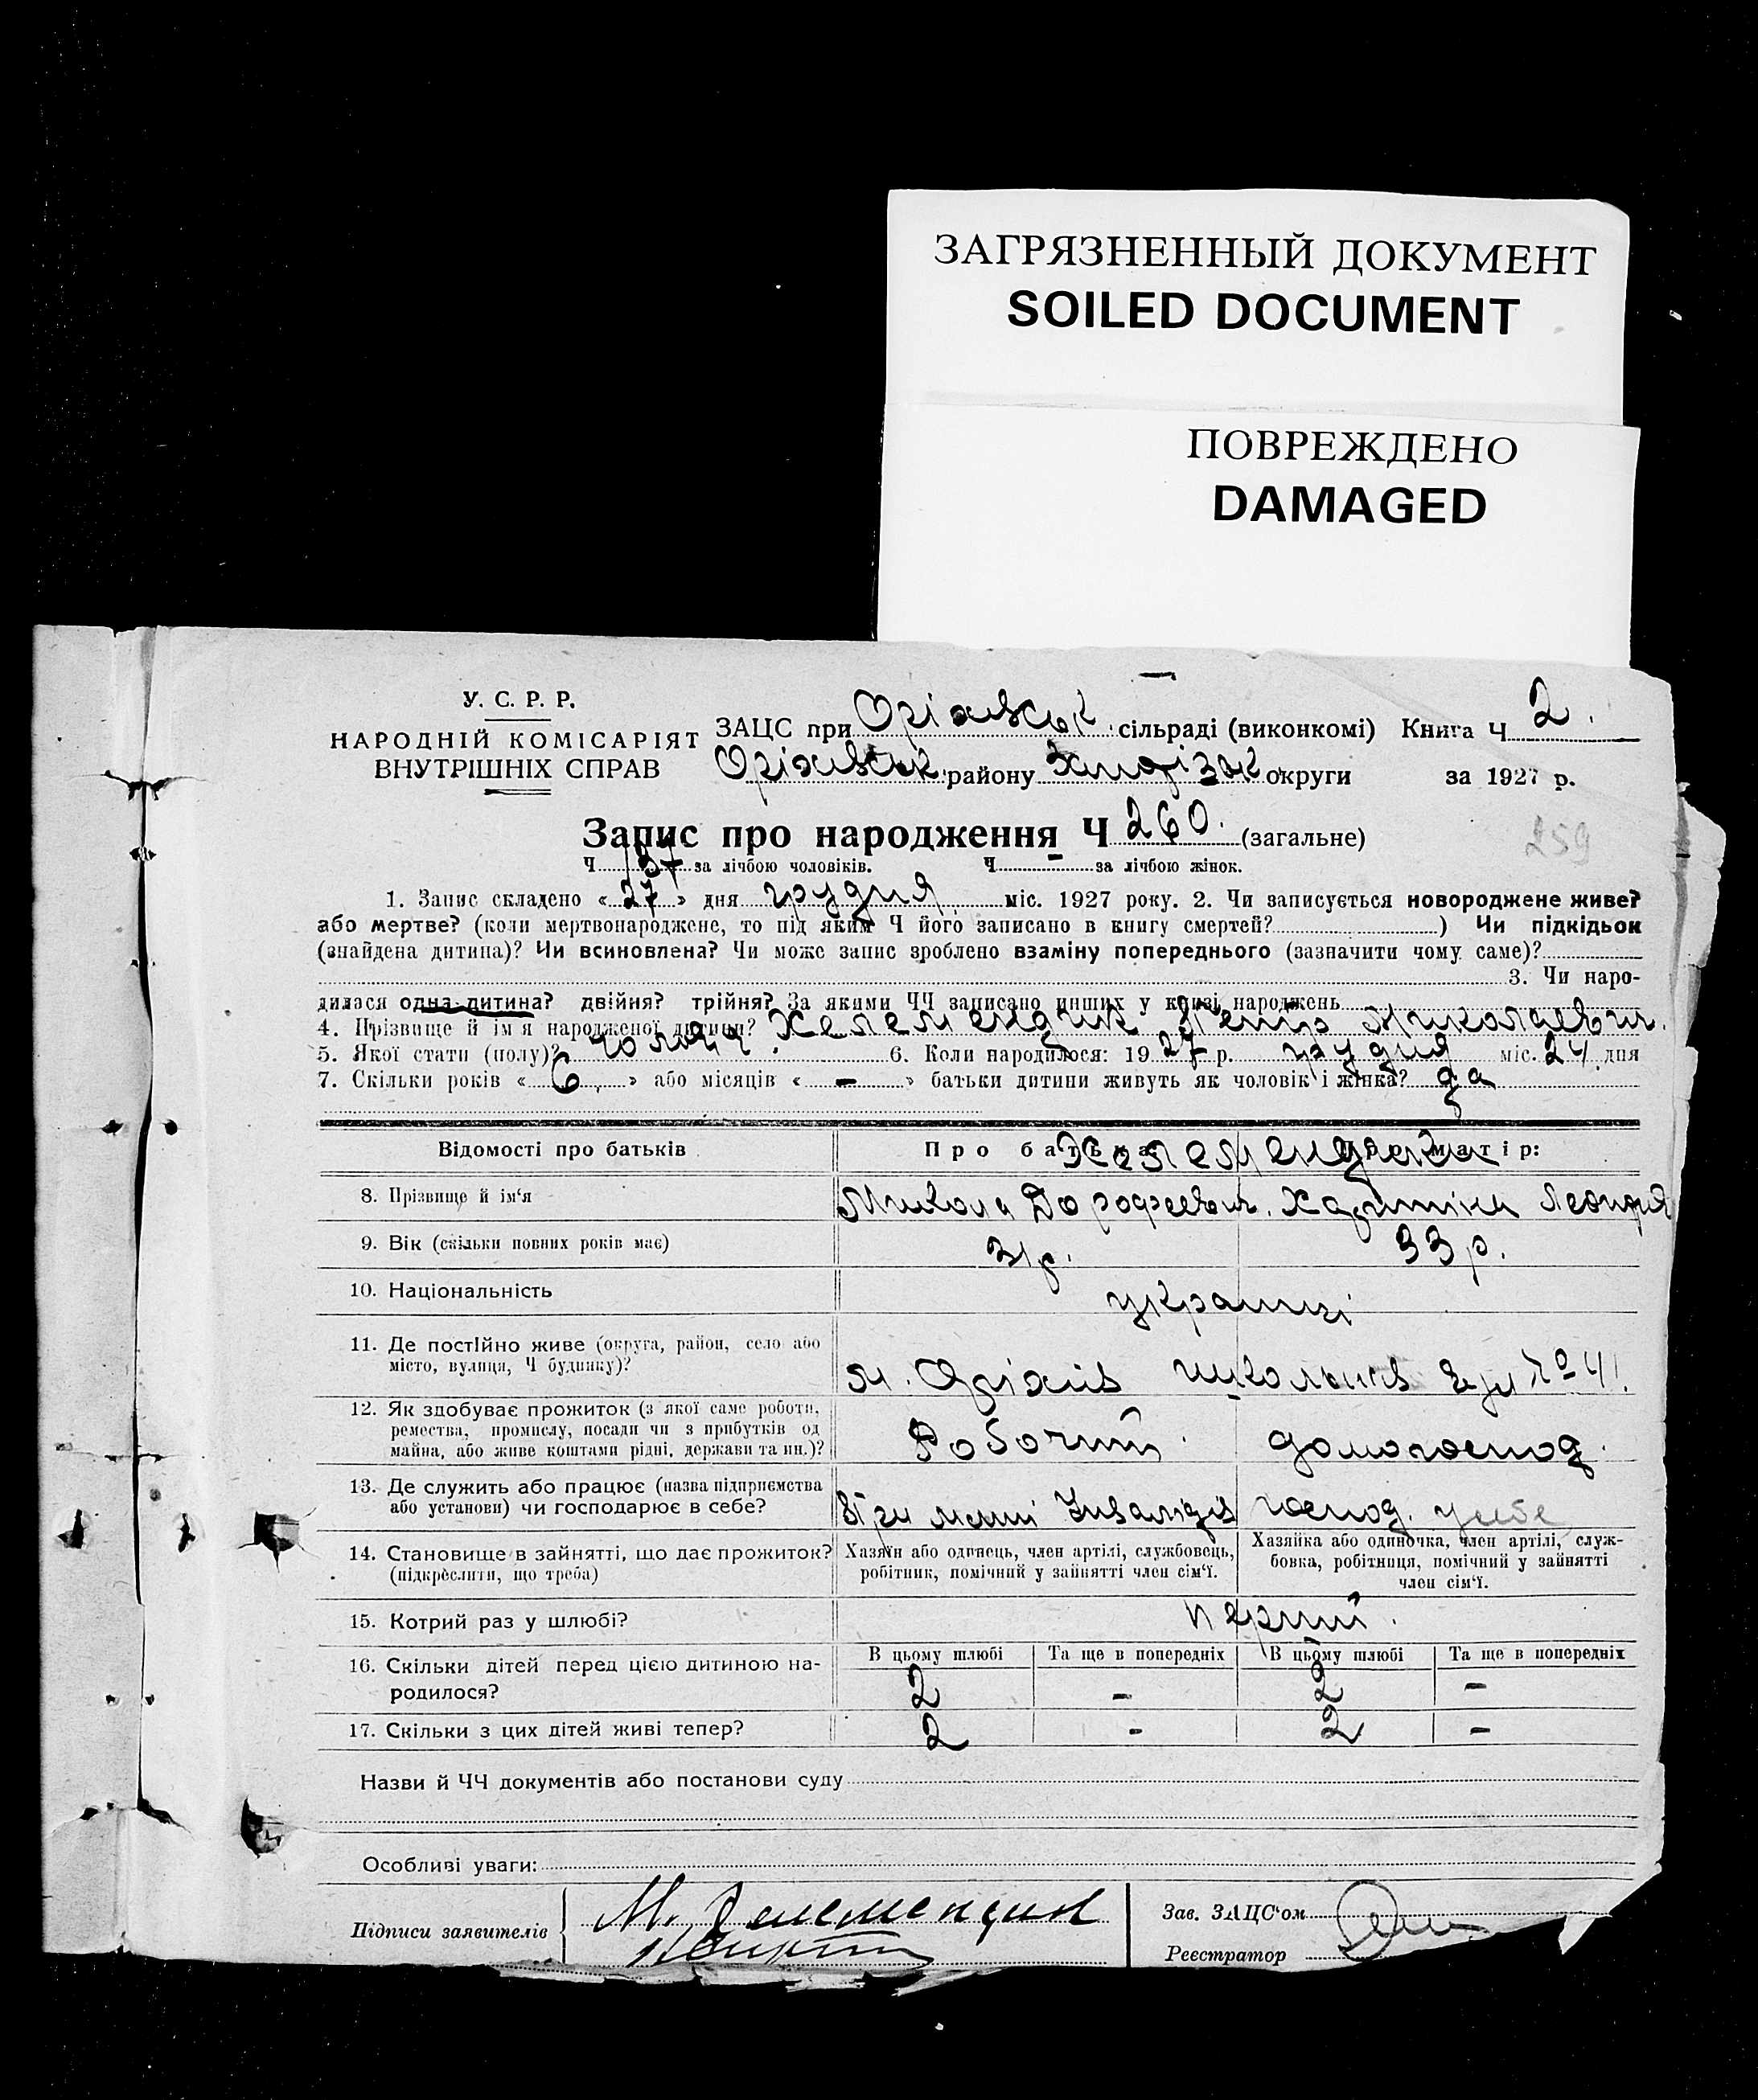 ЗАГРЯЗНЕННЫЙ ДОКУМЕНТ
SOILED DOCUMENT
ПОВРЕЖДЕНО
DAMAGED
У. С. Р. Р.
НАРОДНІЙ КОМІСАРІЯТ
ВНУТРІШНІХ СПРАВ
ЗАЦС при Оріхівськ. сільраді (виконкомі) Книга Ч 2.
Оріхівськ. району округи за 1927 р.
Запис про народження Ч 260. (загальне)
259
Ч 137 за лічбою чоловіків. Ч за лічбою жінок.
1. Запис складено « 27 » дня грудня міс. 1927 року. 2. Чи записується новороджене живе?
або мертве? (коли мертвонароджене, то під яким Ч його записано в книгу смертей? ) Чи підкідьок
(знайдена дитина)? Чи всиновлена? Чи може запис зроблено взаміну попереднього (зазначити чому саме)?
3. Чи наро-
дилася одна дитина? двійня? трійня? За якими ЧЧ записано инших у книзі народжень
4. Прізвище й ім'я народженої дитини? Желемендчик Петір Миколаевич.
5. Якої стати (полу)? 6. Коли народилося: 19 27 р. грудня міс. 24 дня
7. Скільки років « 6. » або місяців « - » батьки дитини живуть як чоловік і жінка? да
Відомості про батьків Про батька: Про матір:
8. Прізвище й ім'я Микола Дорофеевич.
9. Вік (скільки повних років має) 31 р. 33 р.
10. Національність українці
11. Де постійно живе (округа, район, село або
місто, вулиця, Ч будинку)? м. Оріхів № 41.
12. Як здобуває прожиток (з якої саме роботи,
ремества, промислу, посади чи з прибутків од
майна, або живе коштами рідні, держави та ин.)? Робочий. домогоспод.
13. Де служить або працює (назва підприємства
або установи) чи господарює в себе? Інвалідів господ. у себе
14. Становище в зайнятті, що дає прожиток?
(підкреслити, що треба)
Хазяїн або одинець, член артілі, службовець,
робітник, помічний у зайнятті член сім'ї.
Хазяйка або одиночка, член артілі, служ-
бовка, робітниця, помічний у зайнятті
член сім'ї.
15. Котрий раз у шлюбі? перший.
В цьому шлюбі Та ще в попередніх В цьому шлюбі Та ще в попередніх
16. Скільки дітей перед цією дитиною на-
родилося? 2 - 2 -
17. Скільки з цих дітей живі тепер? 2 - 2 -
Назви й ЧЧ документів або постанови суду
Особливі уваги:
Підписи заявителів
Зав. ЗАЦС'ом
Реєстратор